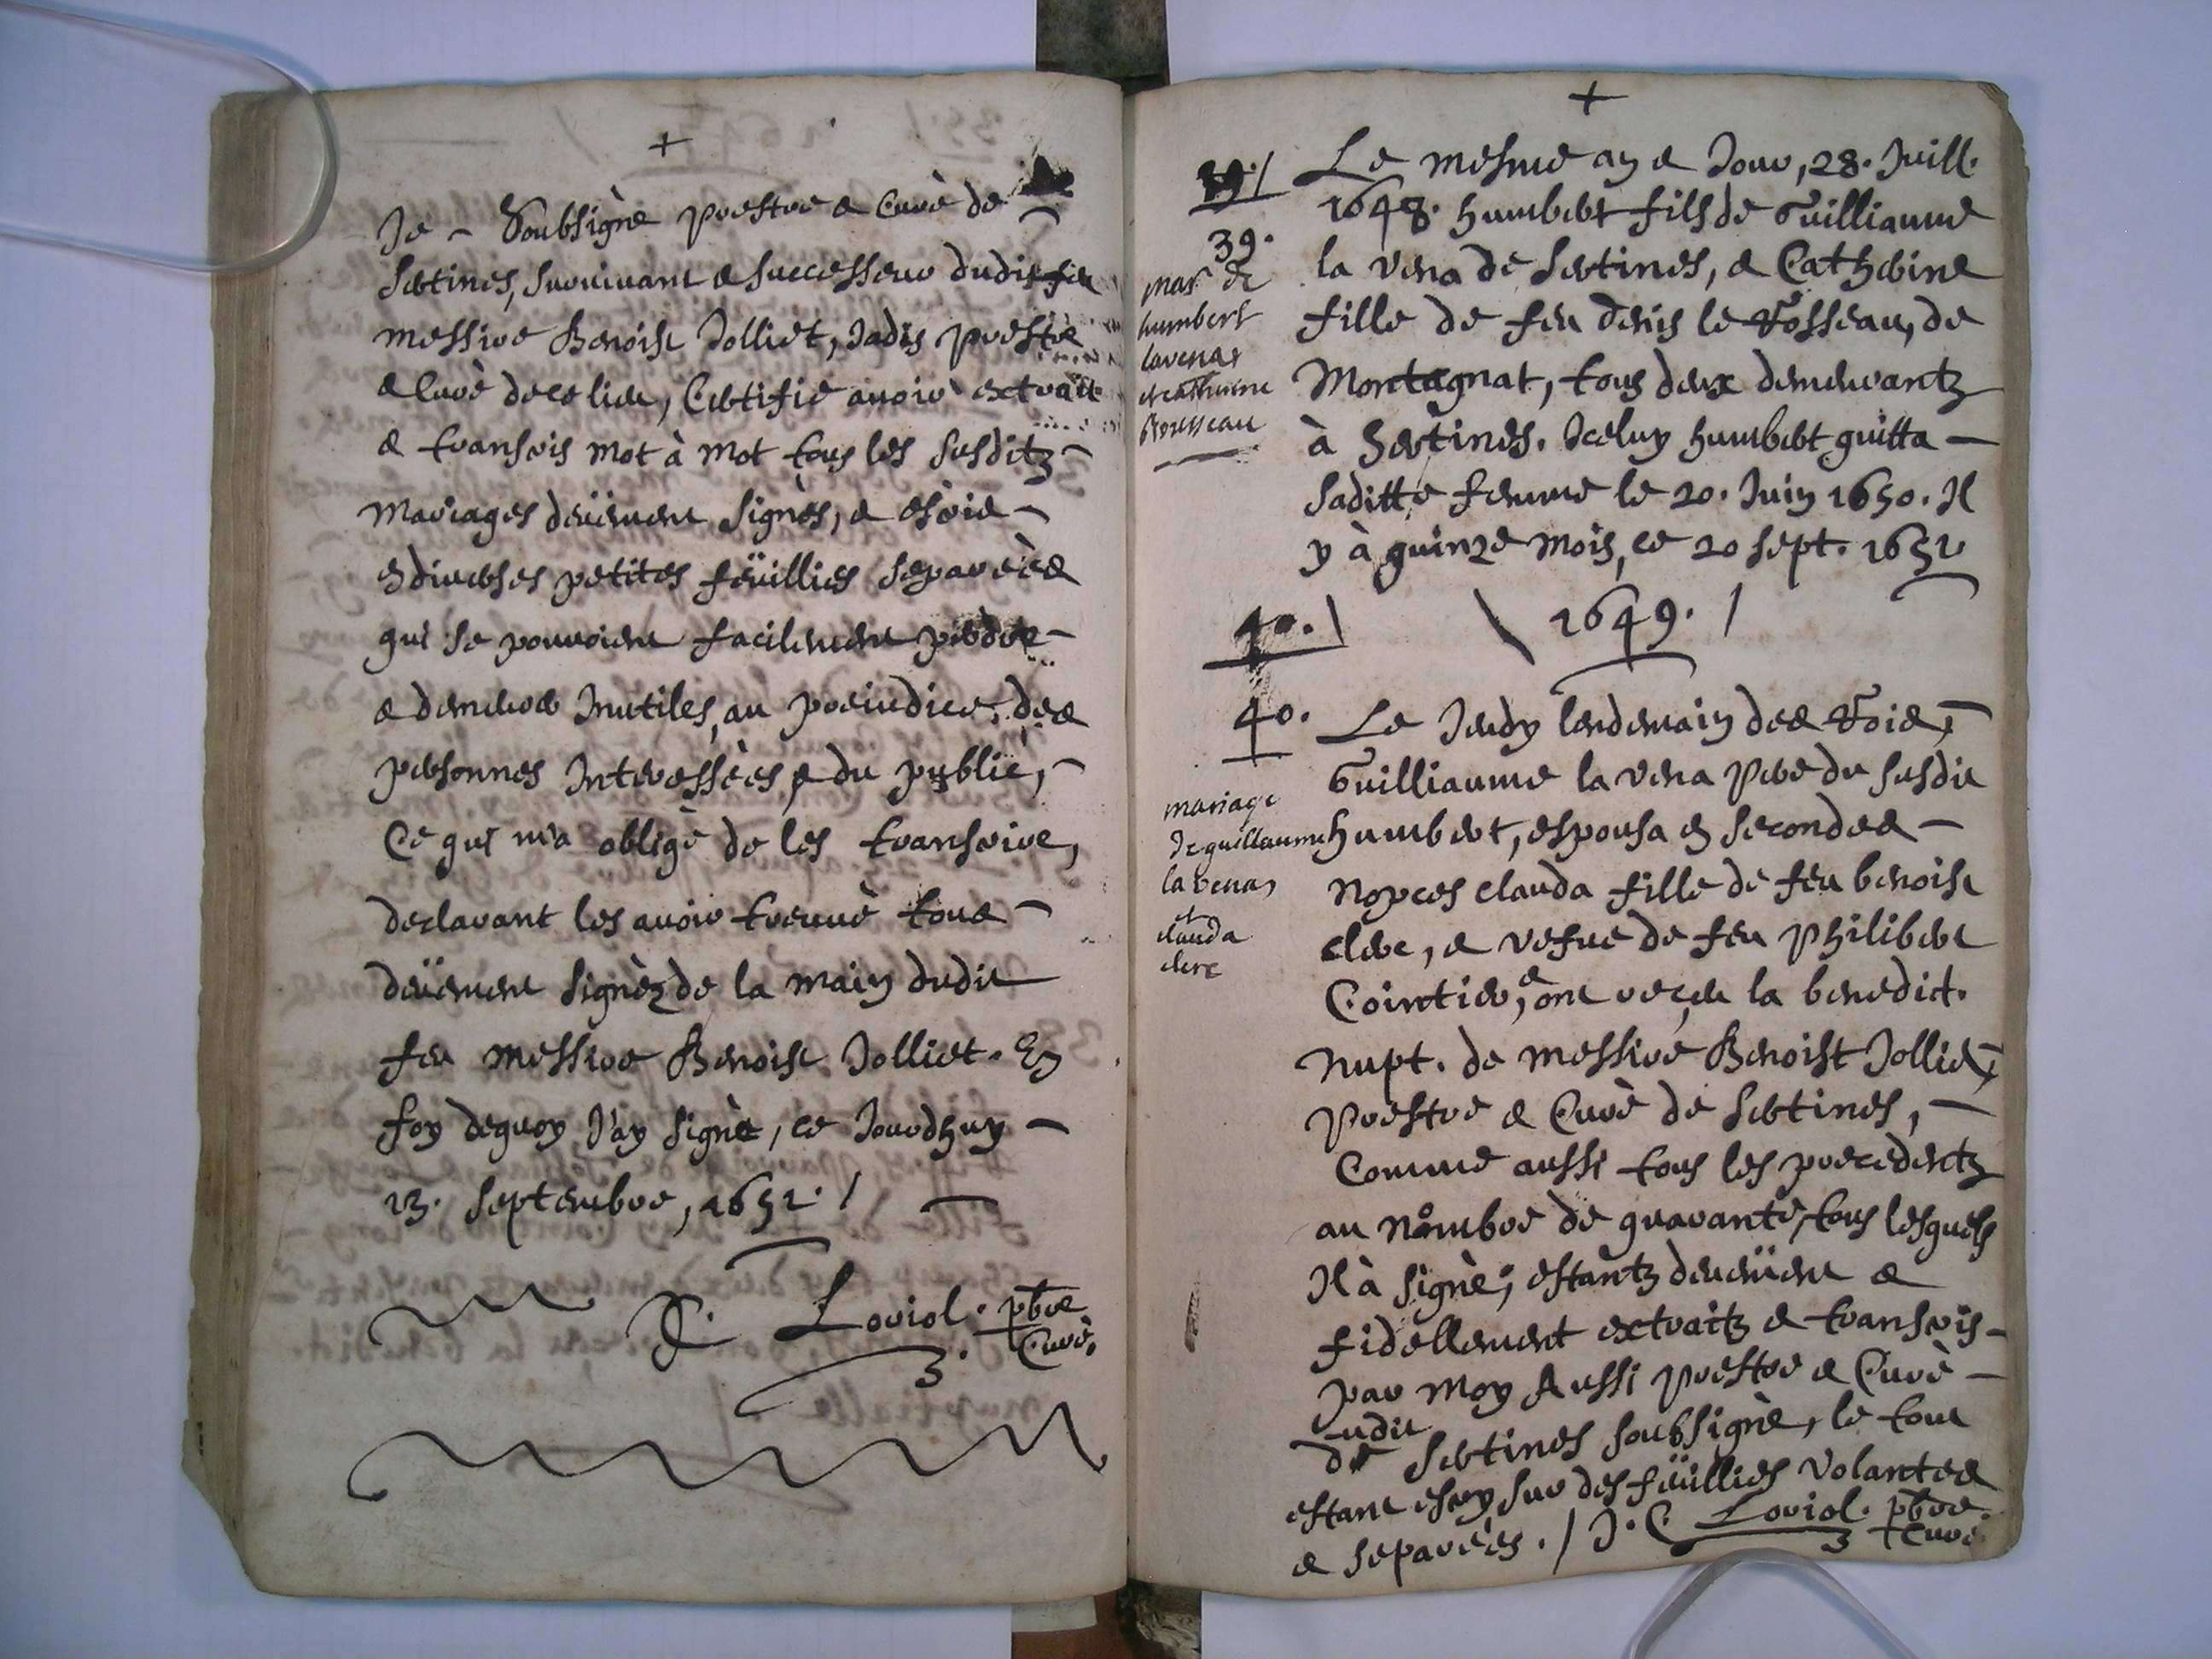 +
Je - Soubsignè prestre & Curè de
Sertines, survivant & successeur dudit feu
messire Benoist Jolliet, Jadis prestre
& Curè de ce lieu, Certifie avoir extrait
& transcris mot à mot tous les susditz
mariages deüement signès, & escris
en diverses petites feüillies separèes
qui se pouvoient facilement perdre
& demeurer Inutiles, au preiudice, des
personnes Interessèes, & du publiè,
Ce qui m'a obligè de les transcrire,
declarant les avoir treuvè tous
deüement signèz de la main dudit
feu messire Benoist Jolliet. En
foy dequoy J'ay signè, ce Jourdhuy
13. Septembre, 1651. /
J. C. Loriol. pbre
Curè.
+
39. / Le mesme an & Jour, 28. Juill.
1648. humbert fils de Guilliaume
39.
la vena de Sertines, & Catherine
mar. de
humbert
lavenas
et catherine
Rousseau
fille de feu denis le Rosseau, de
Montagnat, tous deux demeurantz
à Sertines. Iceluy humbert quitta
saditte femme le 20. Juin 1650. Il
y à quinze mois, ce 20 sept. 1651.
40. / \ 1649. /
40. Le Jeudy lendemain des Rois,
Guilliaume la vena Pere du susdit
mariage
de guillaume
lavenas
et
clauda
clerc
humbert, espousa en secondes
Nopces clauda fille de feu benoist
clerc, & vefve de feu Philibert
Cointier, & ont reçeu la benedict.
nupt. de messire Benoist Jolliet,
Prestre & Curè de Sertines,
Comme aussi tous les precedentz
au nombre de quarante, tous lesquels
Il à signè; estantz deuëment &
fidellement extraitz & transcris
par moy Aussi prestre & Curè
dudit Sertines soubsignè, le tout
estant escry sur des feüillies volantes
& separèes. / J. C. Loriol. pbre.
Curè